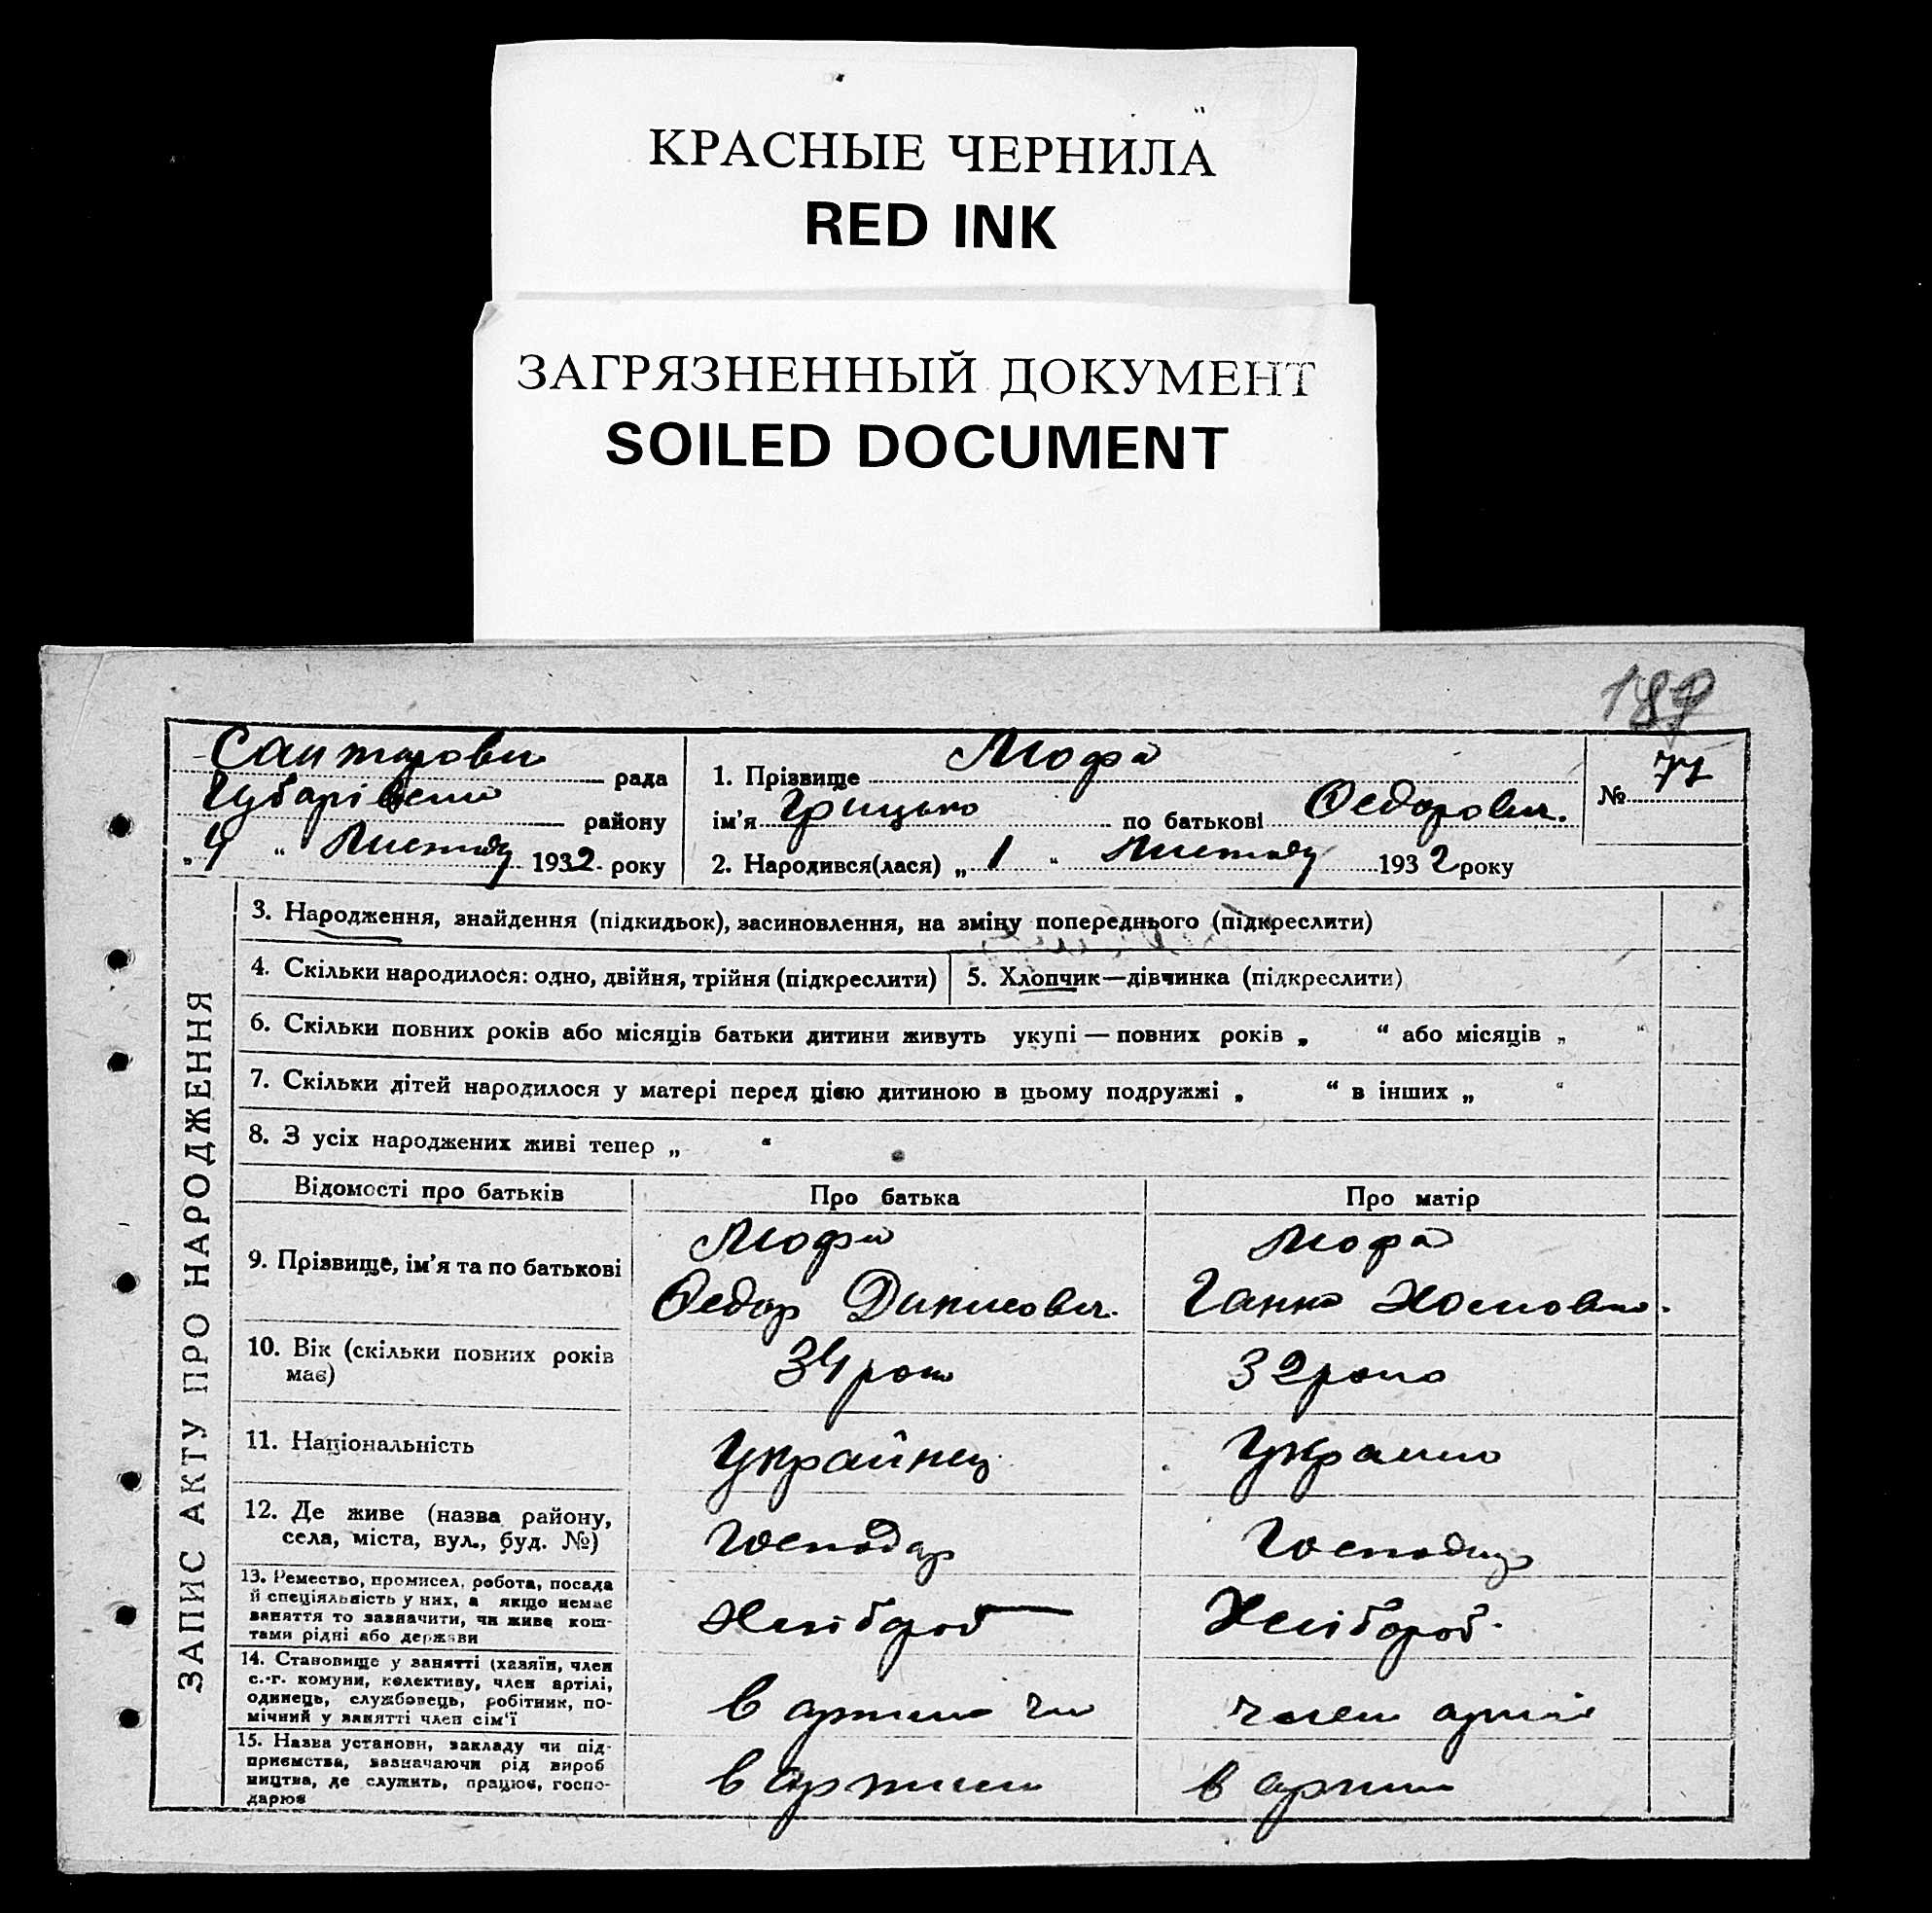 КРАСНЫЕ ЧЕРНИЛА
RED INK
ЗАГРЯЗНЕННЫЙ ДОКУМЕНТ
SOILED DOCUMENT
189
рада
району
„4“ 1932 року
1. Прізвище Мюфа
ім'я Грицько по батькові Федорович.
2. Народився(лася) „1“ 1932 року
№ 77
ЗАПИС АКТУ ПРО НАРОДЖЕННЯ
3. Народження, знайдення (підкидьок), засиновлення, на зміну попереднього (підкреслити)
4. Скільки народилося: одно, двійня, трійня (підкреслити)
5. Хлопчик—дівчинка (підкреслити)
6. Скільки повних років або місяців батьки дитини живуть укупі — повних років „ “ або місяців „ “
7. Скільки дітей народилося у матері перед цією дитиною в цьому подружжі „ “ в інших „ “
8. З усіх народжених живі тепер „ “
Відомості про батьків
Про батька
Про матір
9. Прізвище, ім'я та по батькові
Мюфа
Федор
Мюфа
Ганна
10. Вік (скільки повних років
має)
34 роки
32 роки
11. Національність
Українец
12. Де живе (назва району,
села, міста, вул., буд. №)
Господар
13. Ремество, промисел, робота, посада
й спеціяльність у них, а якщо немає
заняття то зазначити, чи живе кош-
тами рідні або держави
Хлібороб
Хлібороб.
14. Становище у занятті (хазяїн, член
с.-г. комуни, колективу, член артілі,
одинець, службовець, робітник, по-
мічний у занятті член сім'ї
в артили
член
15. Назва установи, закладу чи під-
приємства, зазначаючи рід вироб
ництва, де служить, працює, госпо-
дарює
в артили
в артили